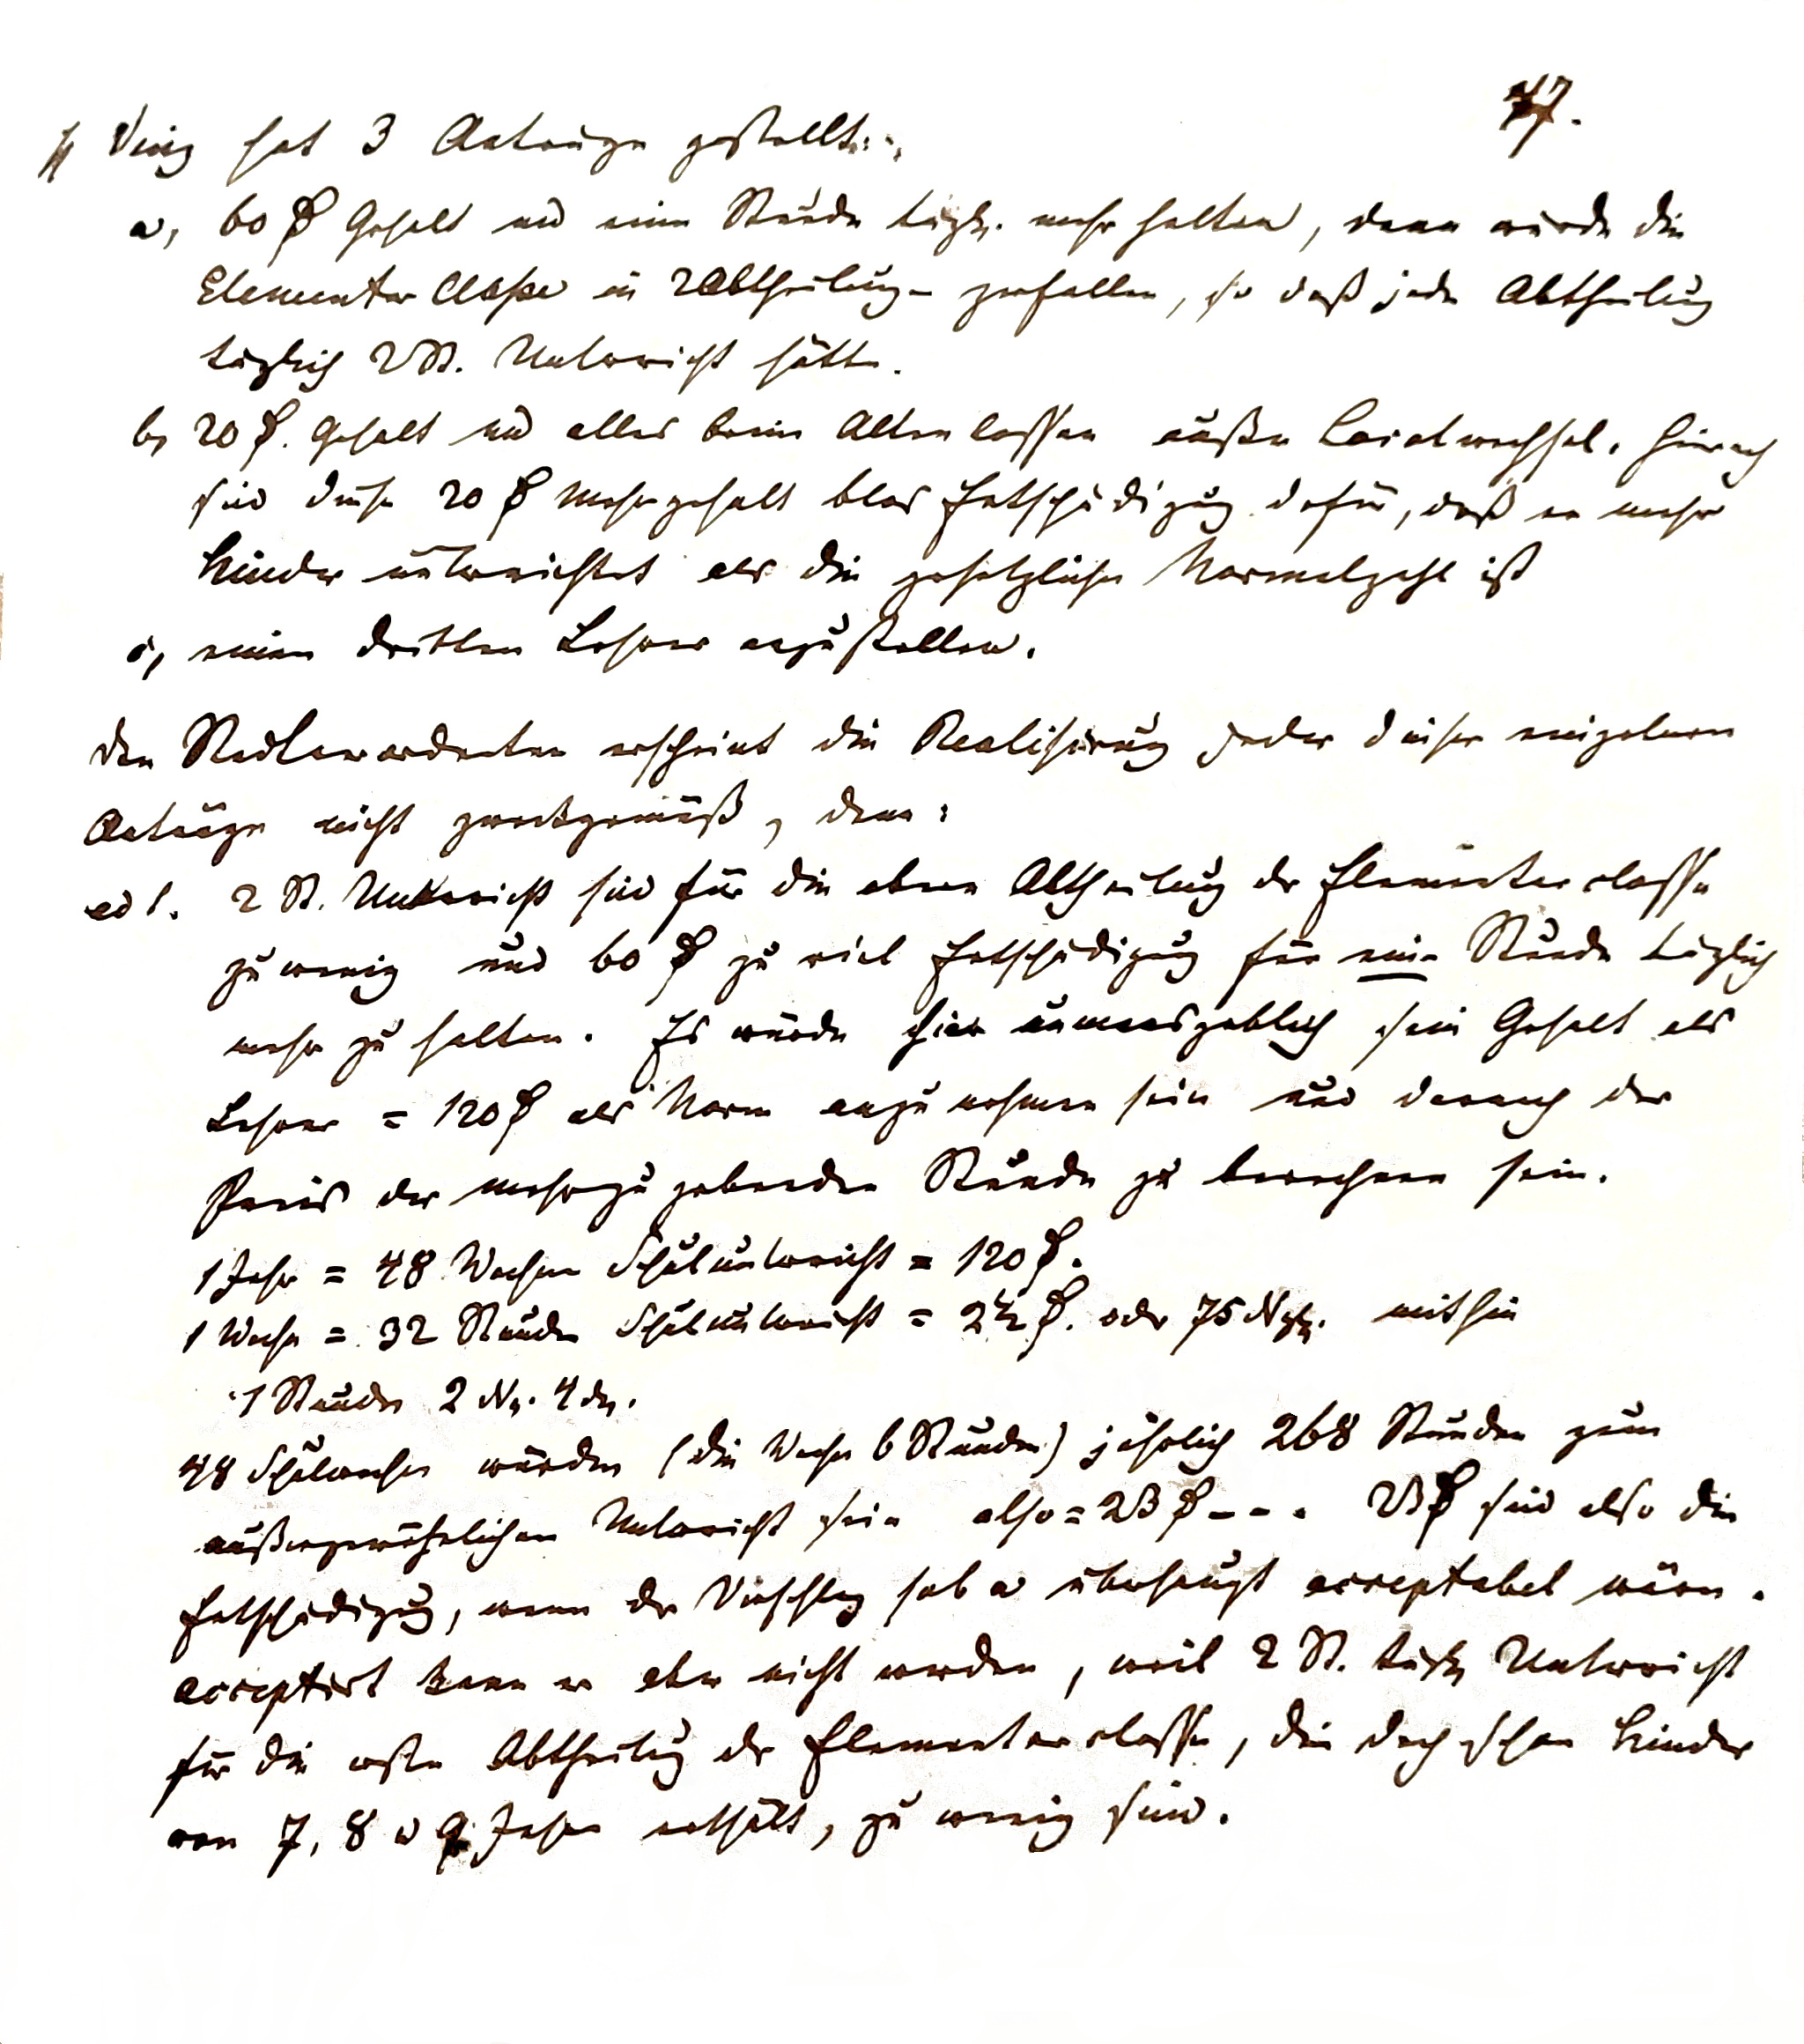 47.
Ving hat 3 Anträge gestellt:
a, 60 ₰ Gehalt und eine Stunde tägl. mehr halten, dann würde die
Elementar Classe in 2 Abtheilung- zerfallen, so daß jede Abtheilung
täglich 2 St. Unterricht hätte.
b, 20 ₰. Gehalt und alles beim Alten lassen außer Localwechsel. Hienach
sind diese 20 ₰ Mehrgehalt blos Entschädigung dafür, daß er mehr
Kinder unterrichtet als die gesetzliche Normalzahl ist
c, einen dritten Lehrer anzustellen.
Den Stadtverordneten erscheint die Realisirung jeder dieser einzelnen
Anträge nicht zweckgemäß, denn:
ad 1. 2 St. Unterricht sind für die obere Abtheilung der Elementarclasse
zu wenig und 60 ₰ zu viel Entschädigung für eine Stunde täglich
mehr zu halten. Es würde hier unmasgeblich sein Gehalt als
Lehrer = 120 ₰ als Norm anzunehmen sein und darnach der
Preis der mehrzugebenden Stunde zu berechnen sein.
1 Jahr = 48 Wochen Schulunterricht = 120 ₰.
1 Woche = 32 Stunden Schulunterricht = 2½ ₰. oder 75 Ngr. mithin
1 Stunde 2 N. 4 dn.
48 Schulwochen würden (die Woche 6 Stunden) jährlich 268 Stunden zum
außergewöhnlichen Unterricht sein also = 23 ₰ - - . 23 ₰ sind also die
Entschädigung, wenn der Vorschlag sub a überhaupt acceptabel wäre.
acceptirt kann er aber nicht werden, weil 2 St. tägl. Unterricht
für die erste Abtheilung der Elementarclasse, die doch schon Kinder
von 7, 8 u 9 Jahren enthält, zu wenig sind.